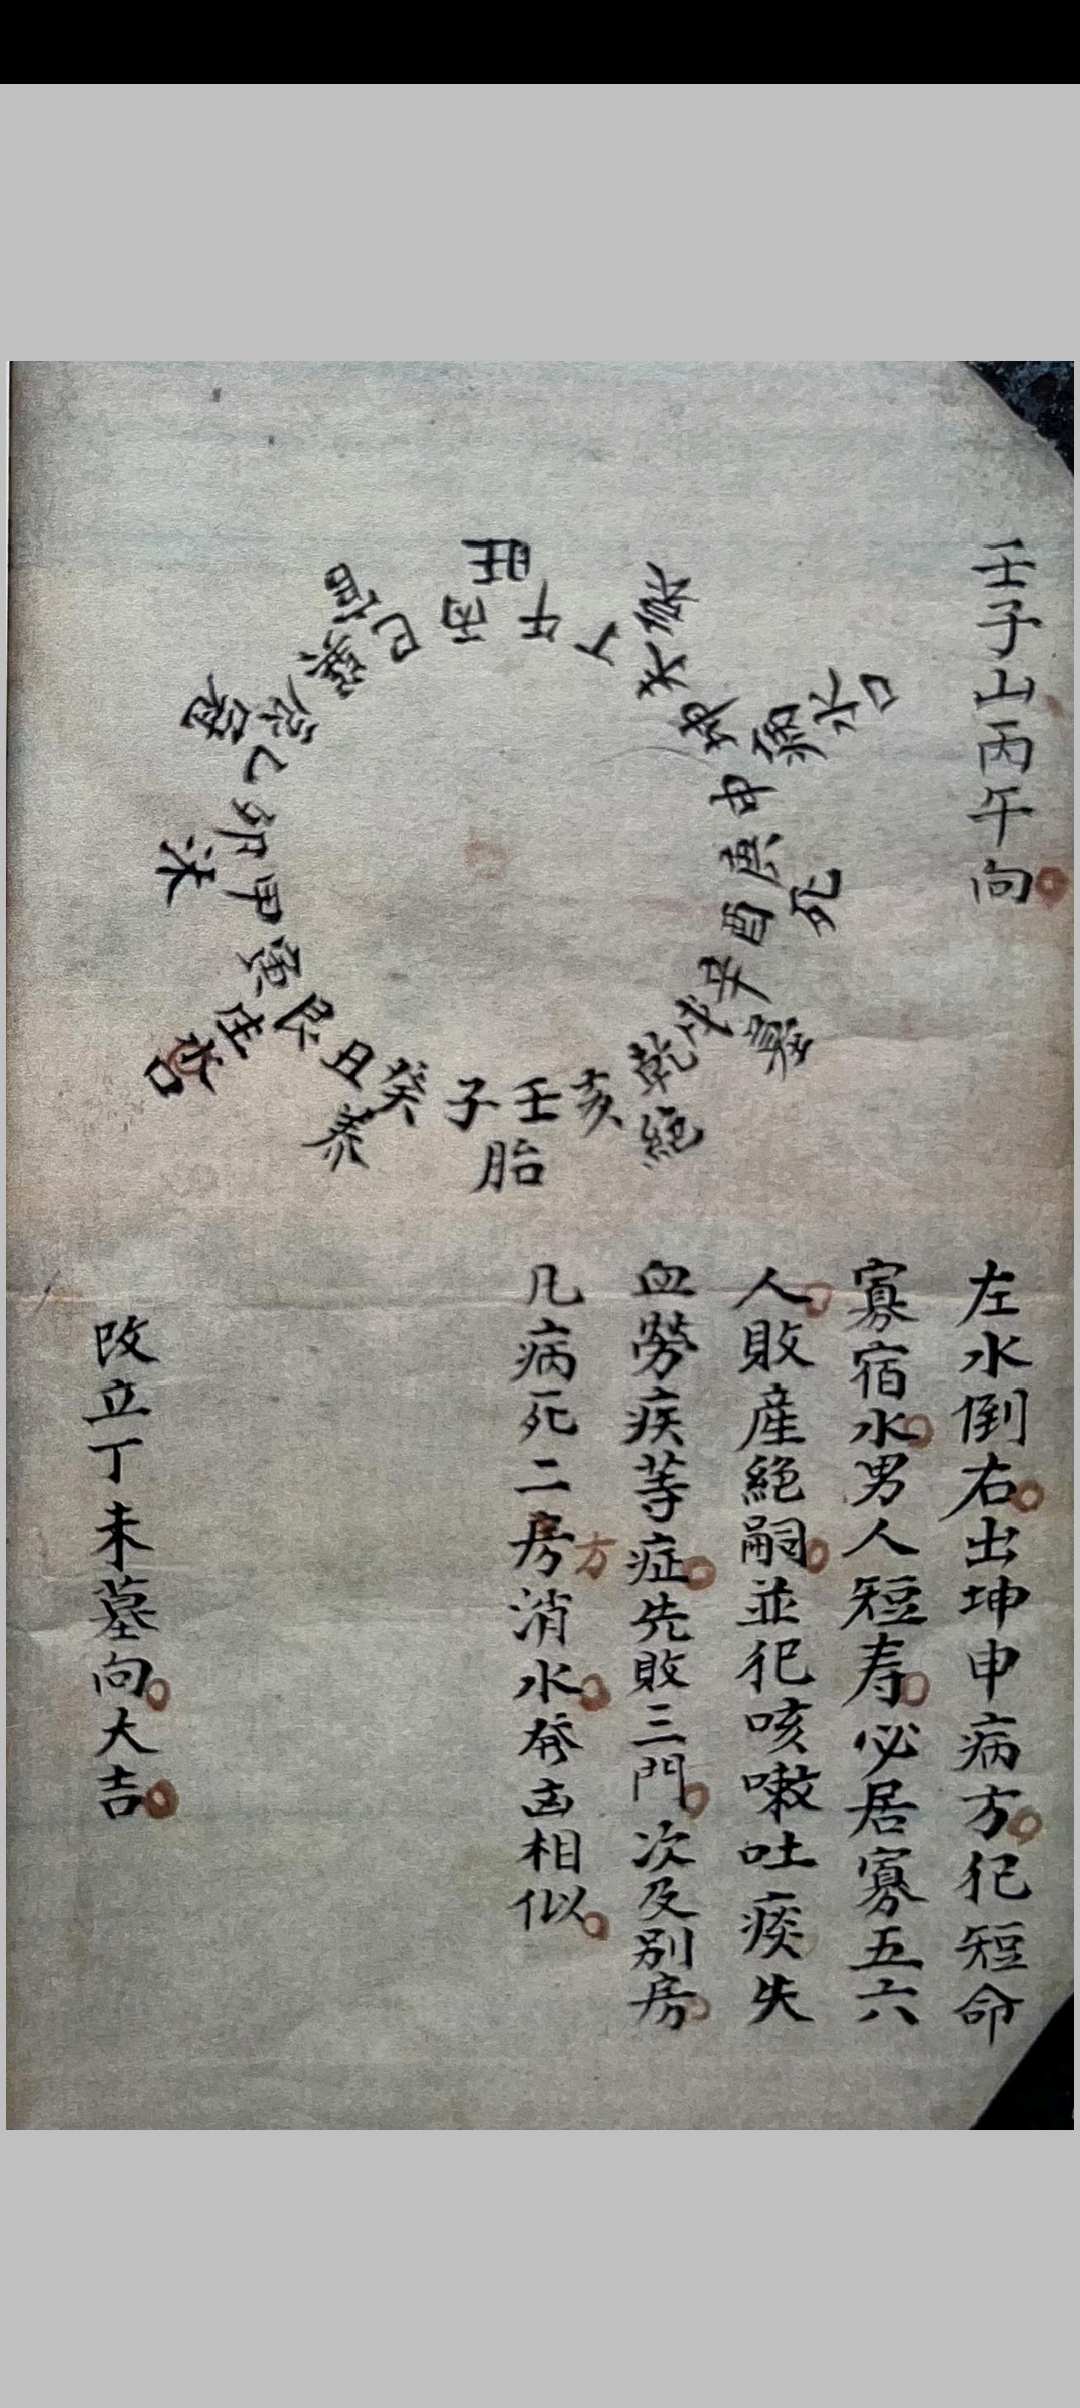 壬子山丙午向
旺
衰
病
水口
死
墓
絕
胎
养
生
水口
沐
冠
臨
丙午丁未坤申庚酉辛戌乾亥壬子癸丑艮寅甲卯乙辰巽巳
左水倒右出坤申病方犯短命
寡宿水男人短寿必居寡五六
人敗産絕嗣並犯咳嗽吐痰失
血劳疾等症先敗三門次及別房
凡病死二房方消水發凶相似
改立丁未墓向大吉